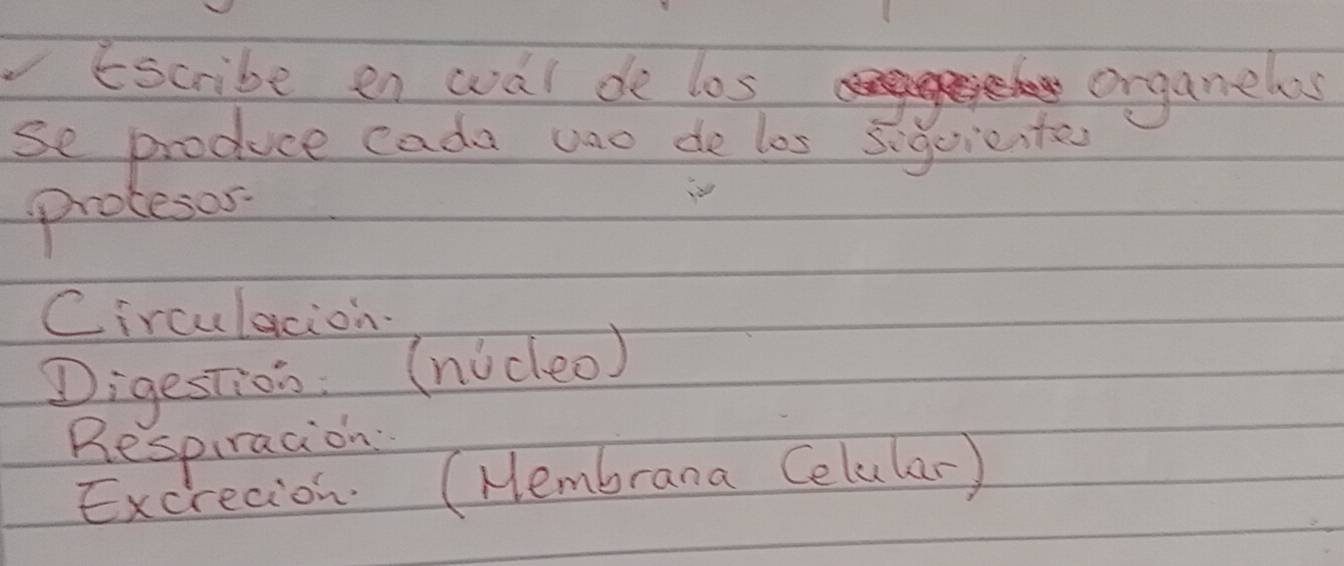 ✓ Escribe en cuál de los organelos
se produce cada uno de los siguientes
procesos.
Circulación.
Digestión: (núcleo)
Respiración:
Excreción. (Membrana Celular)